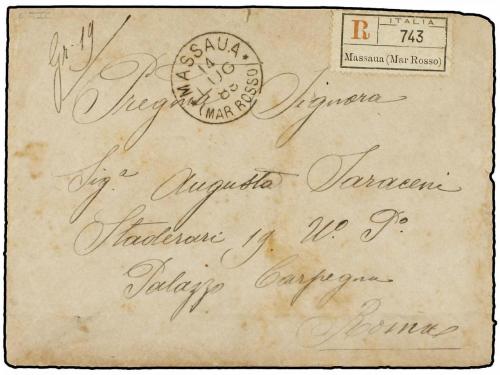 Gr. 19
MASSAUA
14
LUG
(MAR ROSSO)
R
ITALIA
743
Massaua (Mar Rosso)
Pregma Signora
Sig.ª Augusta Saraceni
Staderari, 19. Uº. Pº
Palazzo Carpegna
Roma